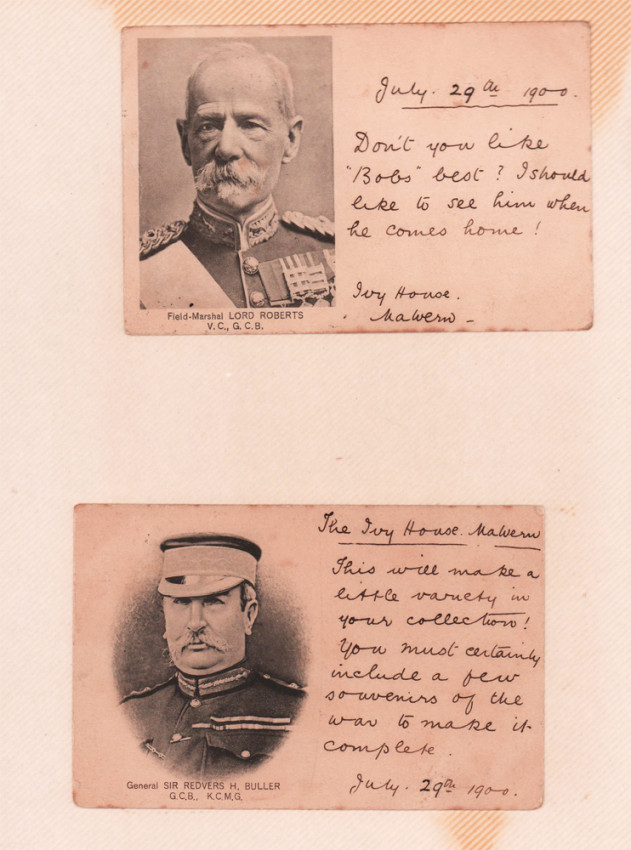 July. 29th 1900.
Don't you like
"Bobs" best? I should
like to see him when
he comes home!
Ivy House.
Malvern -
Field-Marshal LORD ROBERTS
V.C., G.C.B.
The Ivy House. Malvern
This will make a
little variety in
your collection!
You must certainly
include a few
souvenirs of the
war to make it
complete.
July. 29th 1900.
General SIR REDVERS H, BULLER
G.C.B., K.C.M.G.